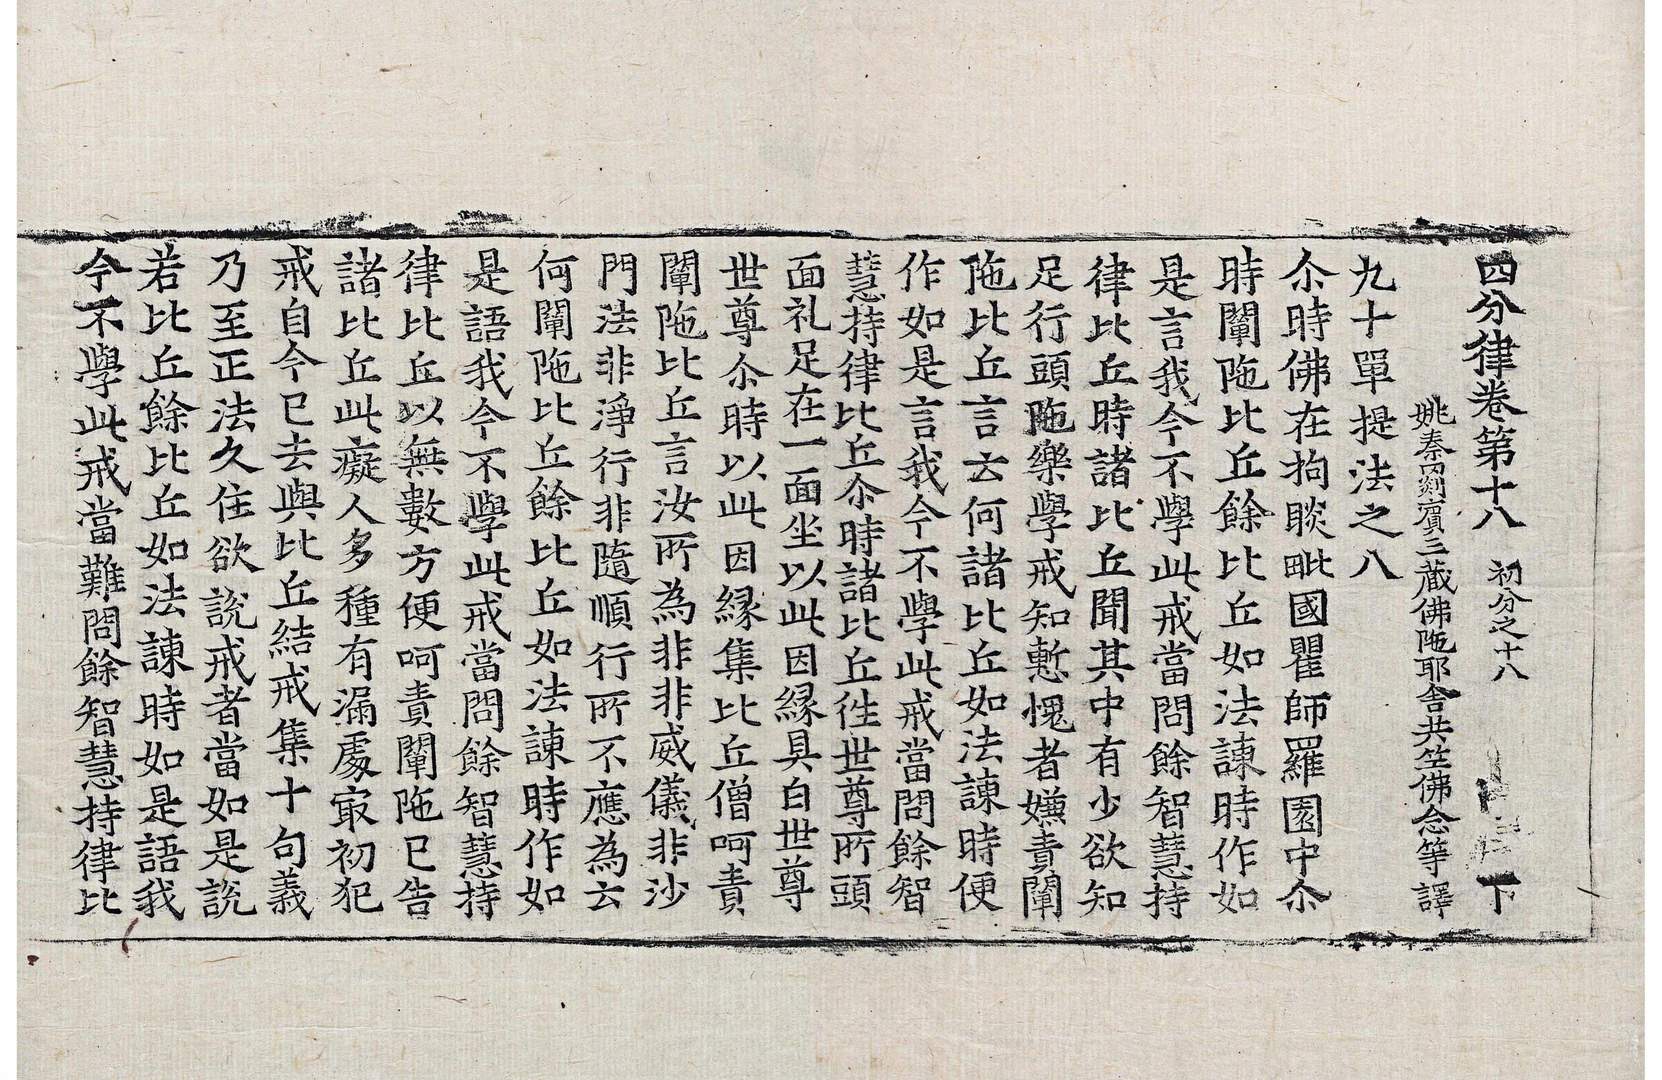 四分律卷第十八 初分之十八 下
姚秦罽賔三藏佛陁耶舎共笁佛念等譯
九十單提法之八
尒時佛在拘睒毗國瞿師羅園中尒
時闡陁比丘餘比丘如法諫時作如
是言我今不學此戒當問餘智慧持
律比丘時諸比丘聞其中有少欲知
足行頭陁樂學戒知慙愧者嫌責闡
陁比丘言云何諸比丘如法諫時便
作如是言我今不學此戒當問餘智
慧持律比丘尒時諸比丘徃世尊所頭
面礼足在一面坐以此因縁具白世尊
世尊尒時以此因縁集比丘僧呵責
闡陁比丘言汝所為非非威儀非沙
門法非淨行非隨順行所不應為云
何闡陁比丘餘比丘如法諫時作如
是語我今不學此戒當問餘智慧持
律比丘以無數方便呵責闡陁已告
諸比丘此癡人多種有漏處㝡初犯
戒自今已去與比丘結戒集十句義
乃至正法久住欲說戒者當如是說
若比丘餘比丘如法諫時如是語我
今不學此戒當難問餘智慧持律比